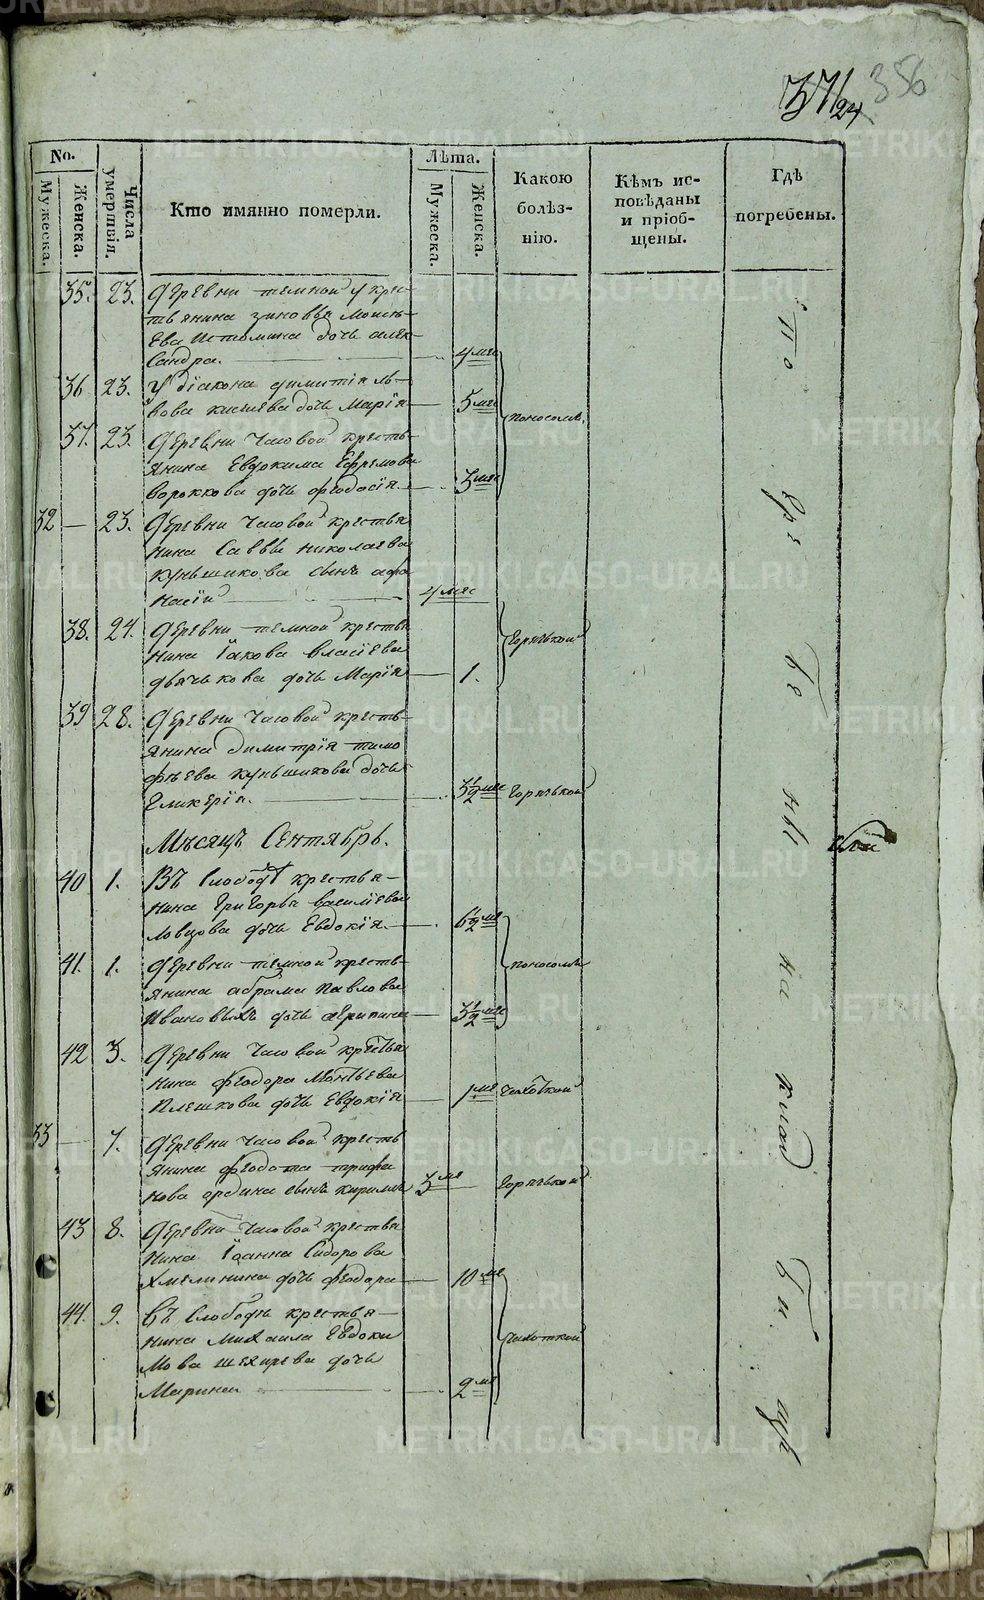 37/24 356
No.
Мужеска.
Женска.
Числа умертвія.
Кто имянно померли.
Лѣта.
Мужеска.
Женска.
Какою болѣз-нію.
Кѣмъ ис-повѣданы и пріоб-щены.
Гдѣ погребены.
35. 23. Деревни темной у крес-
тьянина Зиновья Моисѣ-
ева Истомина дочь Алек-
сандра. 4 мес
36 23. У діакона Димитрія Ль-
вова дочь Марія 5 мес
поносомъ.
37. 23. Деревни Часовой кресть-
янина Евдокима Ефремова
дочь Феодосія. 3 мес
32 — 23. Деревни Часовой крестья
нина Саввы Николаева
Куньщикова сынъ Афа
насій 4 мес
38. 24. Деревни темной крестья
нина Іакова Власіева
Дьячькова дочь Марія 1.
Горячькой
39 28. Деревни Часовой кресть-
янина Димитрія Тимо
фѣева Куньщикова дочь
Гликерія. 3 1/2 мес Горячькой
Мѣсяцъ Сентябрь.
40 1. Въ Слободѣ крестья-
нина Григорья Василіева
Ловцова дочь Евдокія. 6 1/2 ме
41. 1. Деревни темной кресть-
янина Абрама Павлова
Ивановыхъ дочь 3 1/2 мес
поносомъ
42 3. Деревни Часовой крестья
нина Феодора
Плешкова дочь Евдокія 1 ме Чахоткой
33 — 7. Деревни Часовой кресть
янина Федота Трифа
нова сынъ Кирилъ 3 ме Горячькой
43 8. Деревни Часовой крестья
нина Іоанна Сидорова
Хмелинина дочь Феодора 10 ме
44. 9. Въ Слободѣ крестья-
нина Михаила Евдоки
мова дочь
Марина 2 ме
Чахоткой
на
METRIKI.GASO-URAL.RU